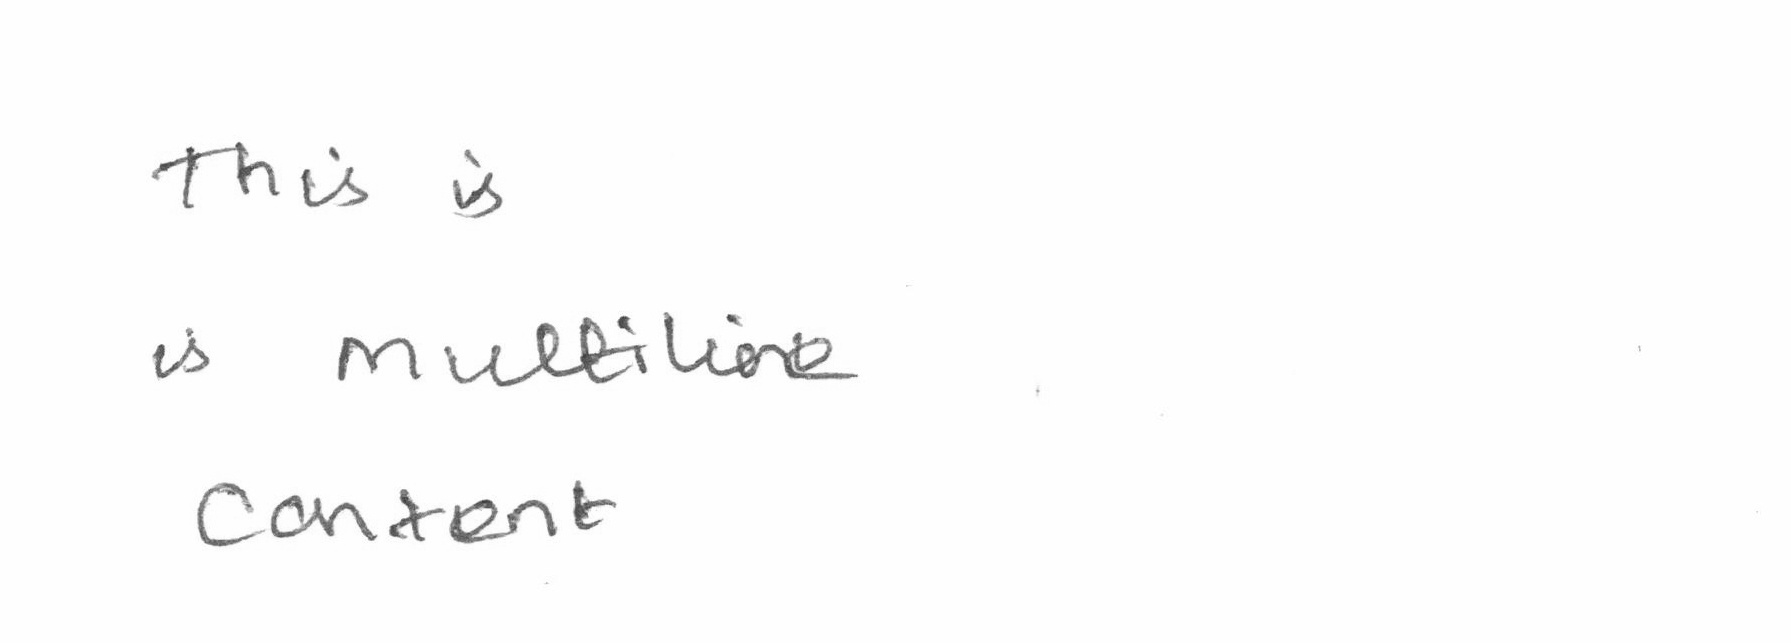 This is
is multiline
Content